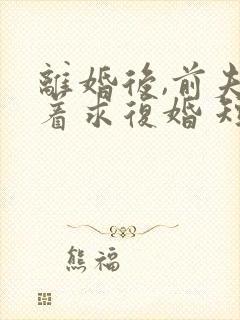 離婚後,前夫
着求復婚 短
熊福